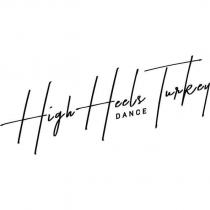 High Heels Turkey
DANCE